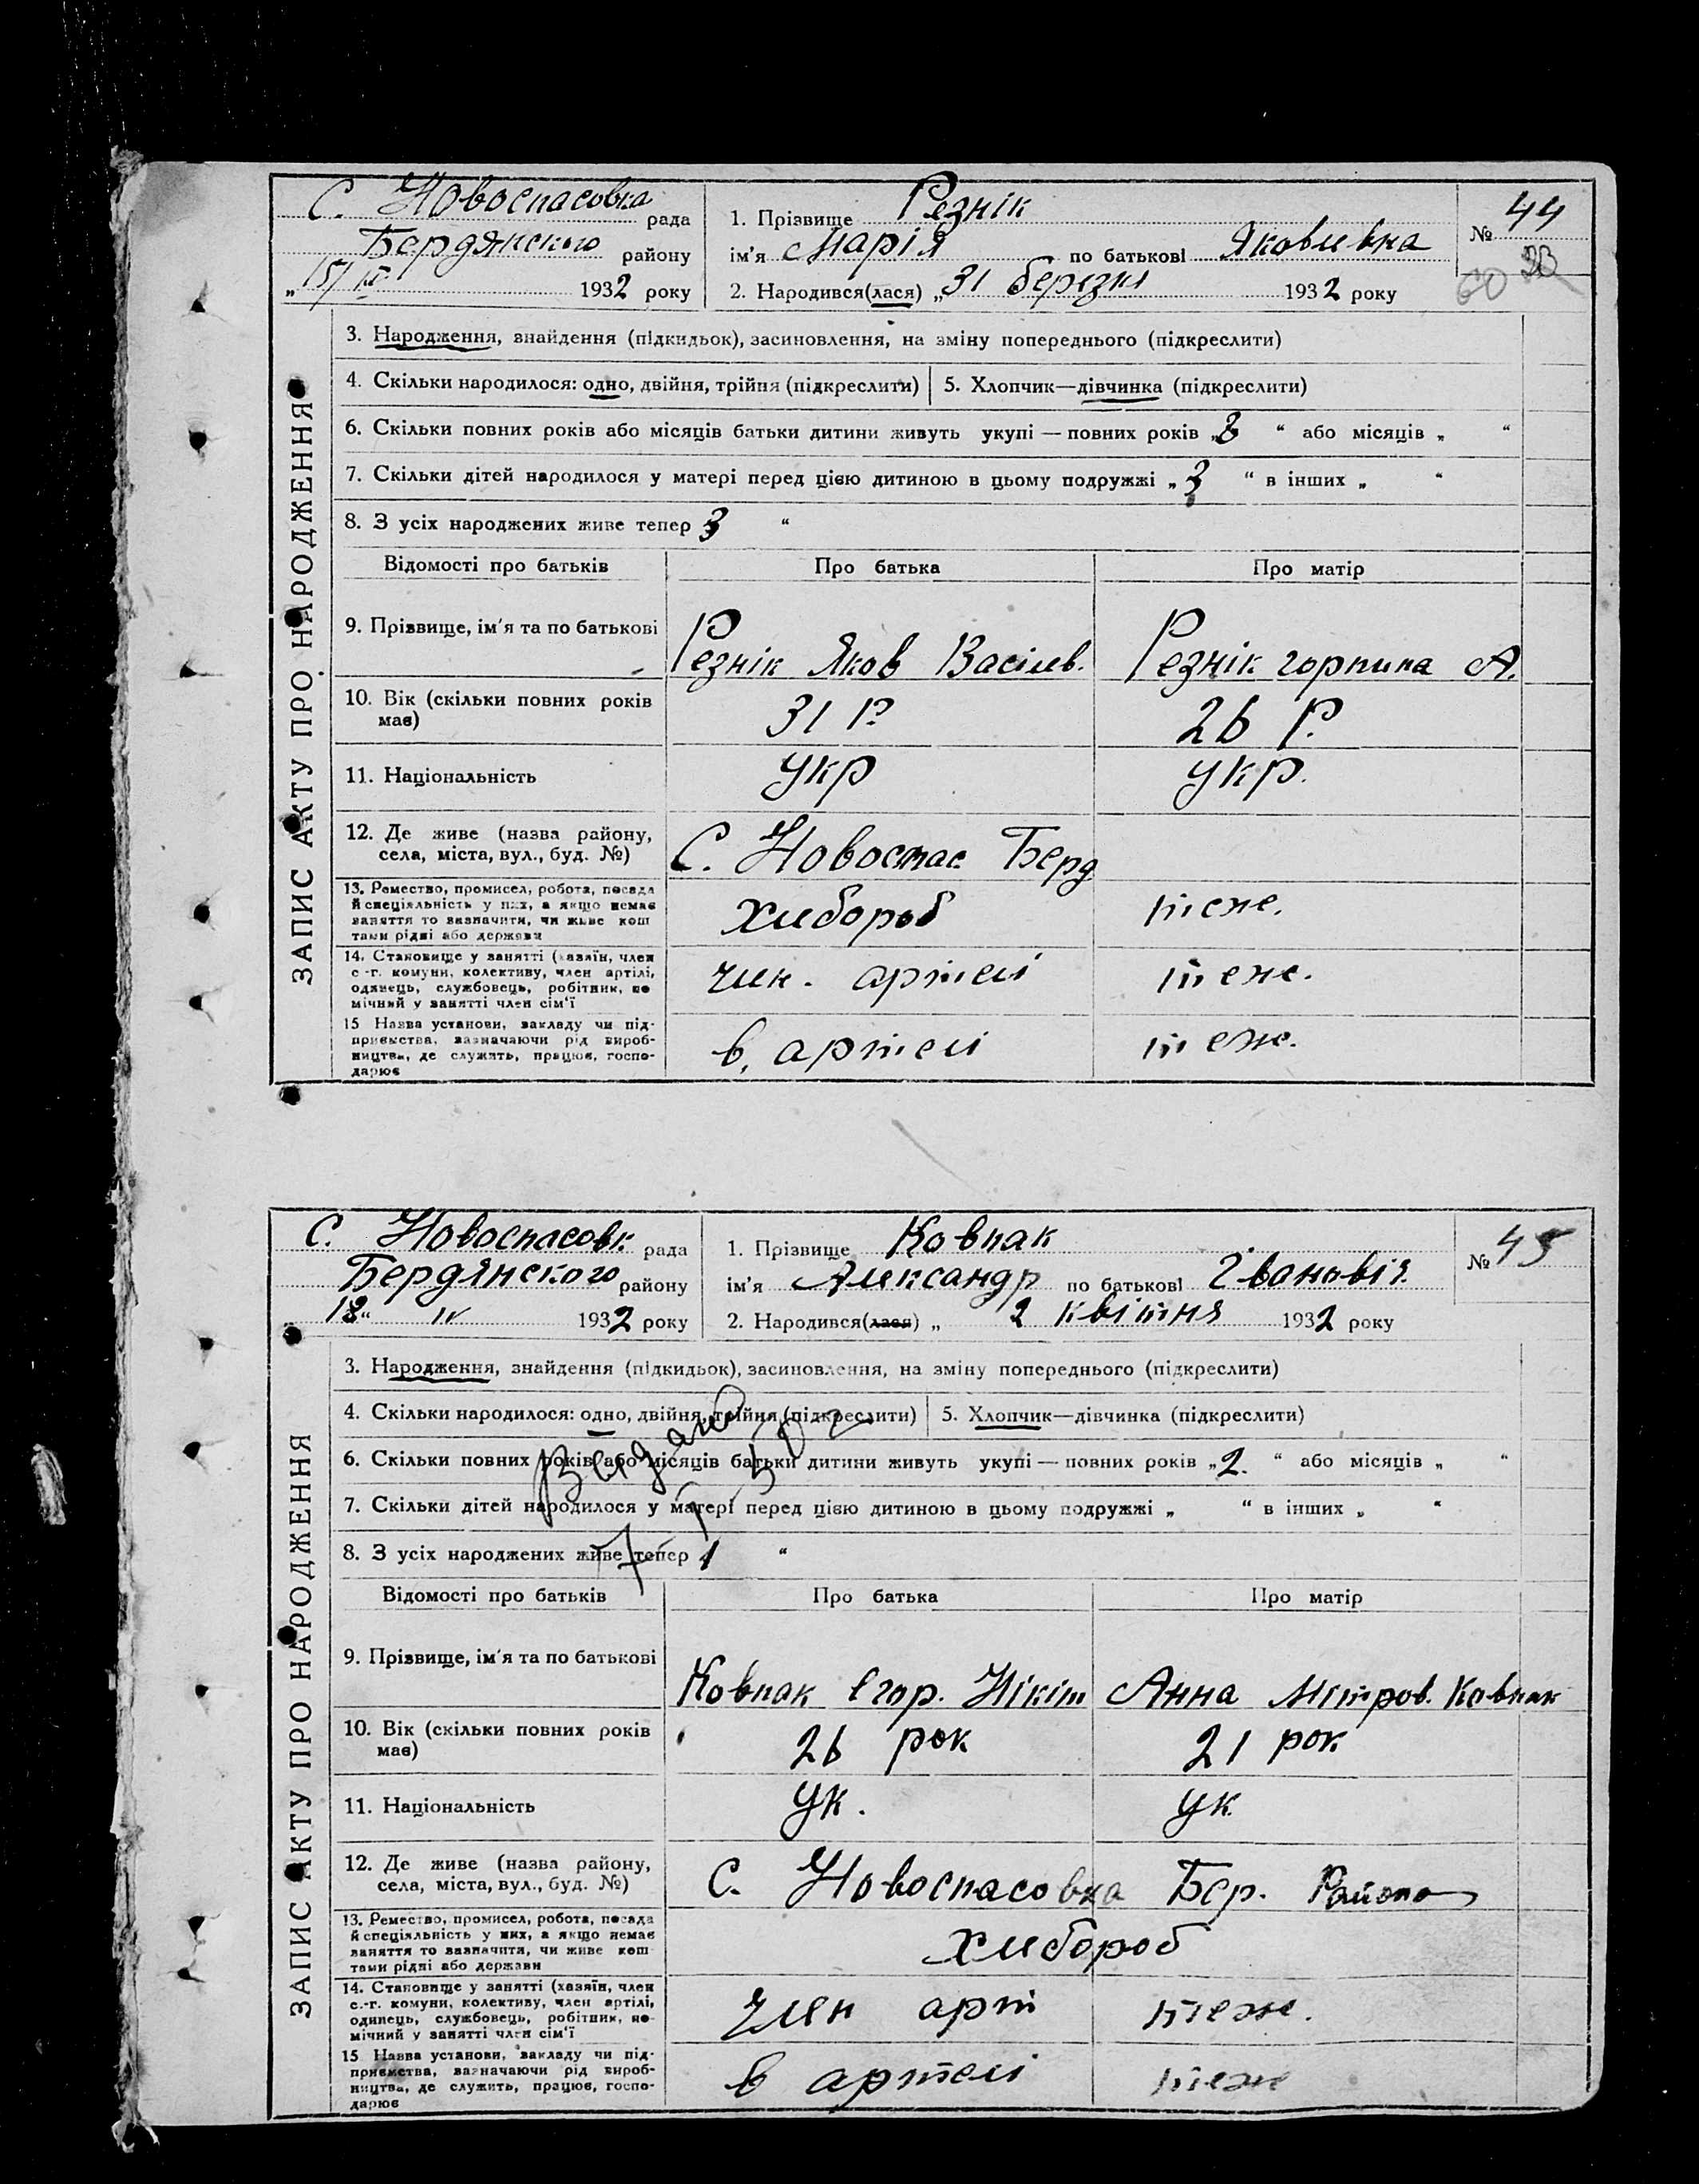 С. Новоспасовка рада
Бердянского району
„15/IV 1932 року
1. Прізвище Резнік
ім'я Марія по батькові Яковлівна
2. Народився(лася) „31 березня 1932 року
№ 44
60 23
ЗАПИС АКТУ ПРО НАРОДЖЕННЯ
3. Народження, знайдення (підкидьок), засиновлення, на зміну попереднього (підкреслити)
4. Скільки народилося: одно, двійня, трійня (підкреслити) 5. Хлопчик—дівчинка (підкреслити)
6. Скільки повних років або місяців батьки дитини живуть укупі — повних років „8 “ або місяців „ “
7. Скільки дітей народилося у матері перед цією дитиною в цьому подружжі „ 3 “ в інших „ “
8. З усіх народжених живе тепер 3 “
Відомості про батьків Про батька Про матір
9. Прізвище, ім'я та по батькові Резнік Яков Васілев. Резнік горпина А.
10. Вік (скільки повних років має) 31 р. 26 р.
11. Національність укр укр.
12. Де живе (назва району, села, міста, вул., буд. №) С. Новоспас Берд
13. Ремество, промисел, робота, посада
й спеціяльність у них, а якщо немає
заняття то зазначити, чи живе кош
тами рідні або держави
хлебороб теже.
14. Становище у занятті (хазяїн, член
с.-г. комуни, колективу, член артілі,
одинець, службовець, робітник, по
мічний у занятті член сім'ї
член. артелі теже.
15 Назва установи, закладу чи під-
приємства, зазначаючи рід вироб-
ництва, де служить, працює, госпо-
дарює
в, артелі теж.
С. Новоспасовк. рада
Бердянского району
18“ IV 1932 року
1. Прізвище Ковпак
ім'я Александр по батькові
2. Народився(лася) „ 2 квітня 1932 року
№ 45
ЗАПИС АКТУ ПРО НАРОДЖЕННЯ
3. Народження, знайдення (підкидьок), засиновлення, на зміну попереднього (підкреслити)
4. Скільки народилося: одно, двійня, трійня (підкреслити) 5. Хлопчик—дівчинка (підкреслити)
6. Скільки повних років або місяців батьки дитини живуть укупі — повних років „2. “ або місяців „ “
7. Скільки дітей народилося у матері перед цією дитиною в цьому подружжі „ “ в інших „ “
8. З усіх народжених живе тепер 1 “
Відомості про батьків Про батька Про матір
9. Прізвище, ім'я та по батькові Ковпак Егор. Нікіт Анна Мітров. Ковпак
10. Вік (скільки повних років має) 26 рок 21 рок
11. Національність ук. ук
12. Де живе (назва району, села, міста, вул., буд. №) С. Новоспасовка Бер. Района
13. Ремество, промисел, робота, посада
й спеціяльність у них, а якщо немає
заняття то зазначити, чи живе кош
тами рідні або держави
хлебороб
14. Становище у занятті (хазяїн, член
с.-г. комуни, колективу, член артілі,
одинець, службовець, робітник, по-
мічний у занятті член сім'ї
член арт теже.
15 Назва установи, закладу чи під-
приємства, зазначаючи рід вироб-
ництва, де служить, працює, госпо-
дарює
в артелі теже